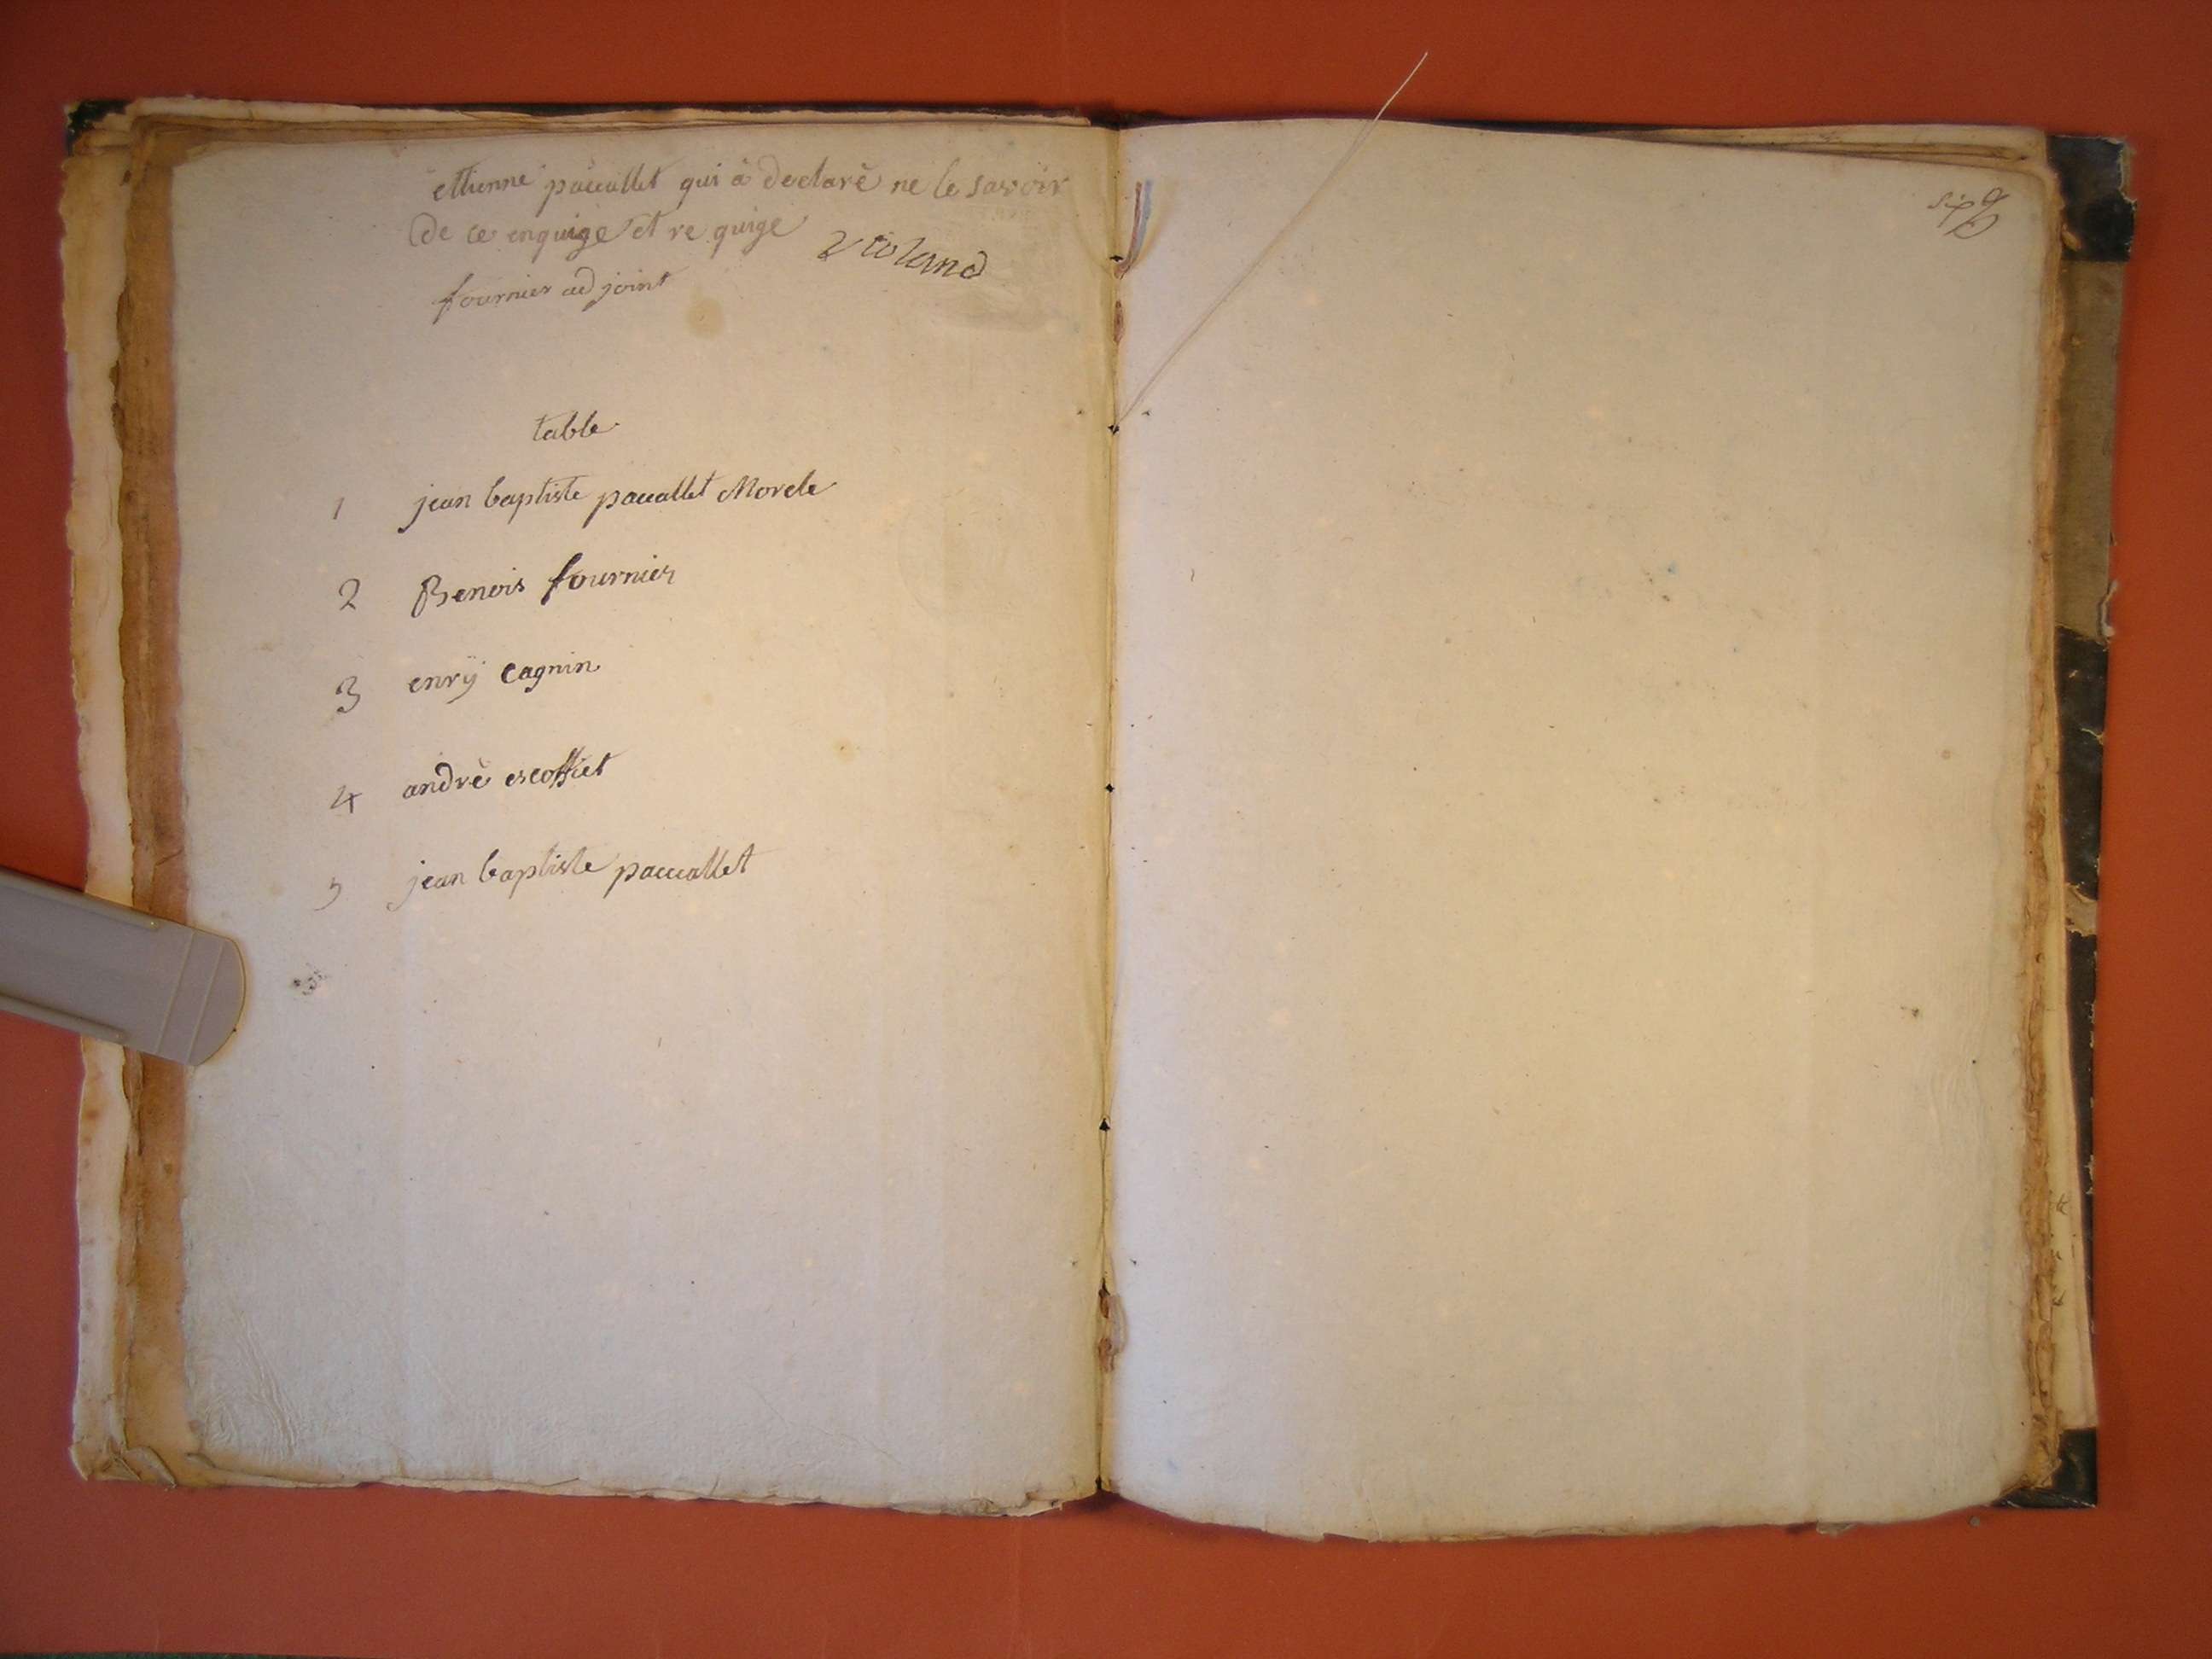 ettienne paccallet qui à declaré ne le savoir
de ce enquige et re quige
violand
fournier adjoint
table
1 jean baptiste paccallet Morele
2 Benois fournier
3 enrÿ cagnin
4 andrè escoffiet
5 jean baptiste paccallet
six